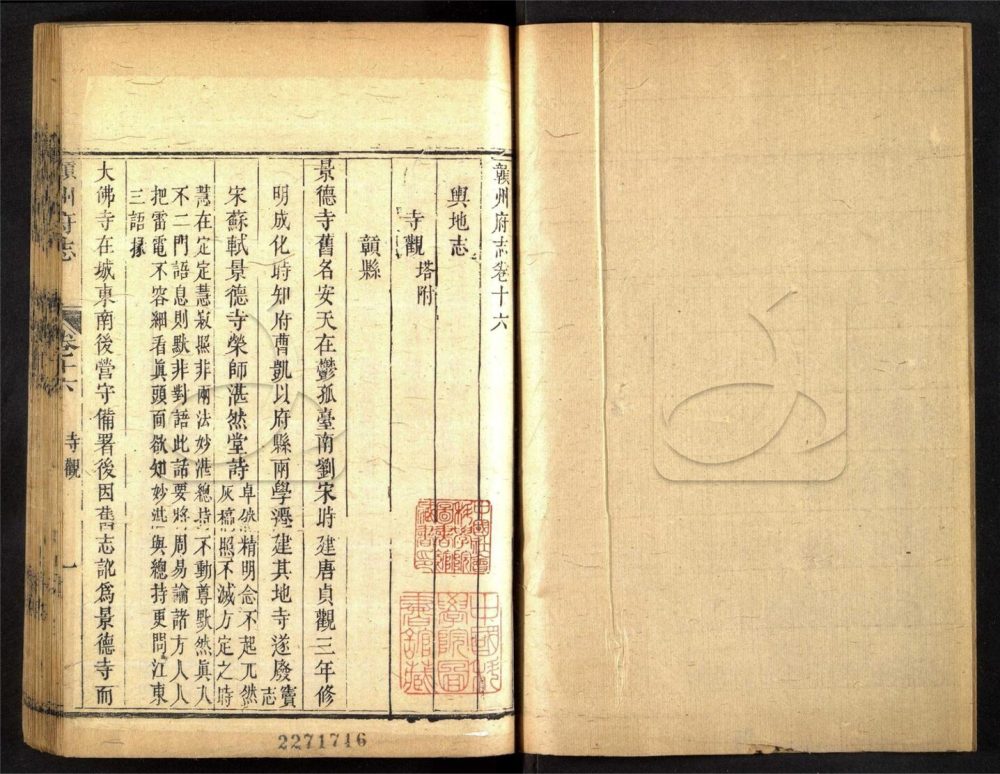 贛州府志卷十六
輿地志
寺觀塔附
贛縣
景德寺舊名安天在鬱孤臺南劉宋時建唐貞觀三年修
明成化時知府曹凱以府縣兩學遷建其地寺遂廢竇志
宋蘇軾景德寺榮師湛然堂詩卓然精明念不起兀然
灰槁照不滅方定之時
慧在定定慧寂照非兩法妙湛總持不動尊默然真入
不二門語息則默非對語此話要將周易論諸方人人
把雷電不容細看真頭面欲知妙湛與總持更問江東
三語掾
大佛寺在城東南後營守備署後因舊志訛為景德寺而
贛州府志
卷十六
寺觀
一
中國社會科學院圖書館藏書印
中國科學院圖書館藏
2271746